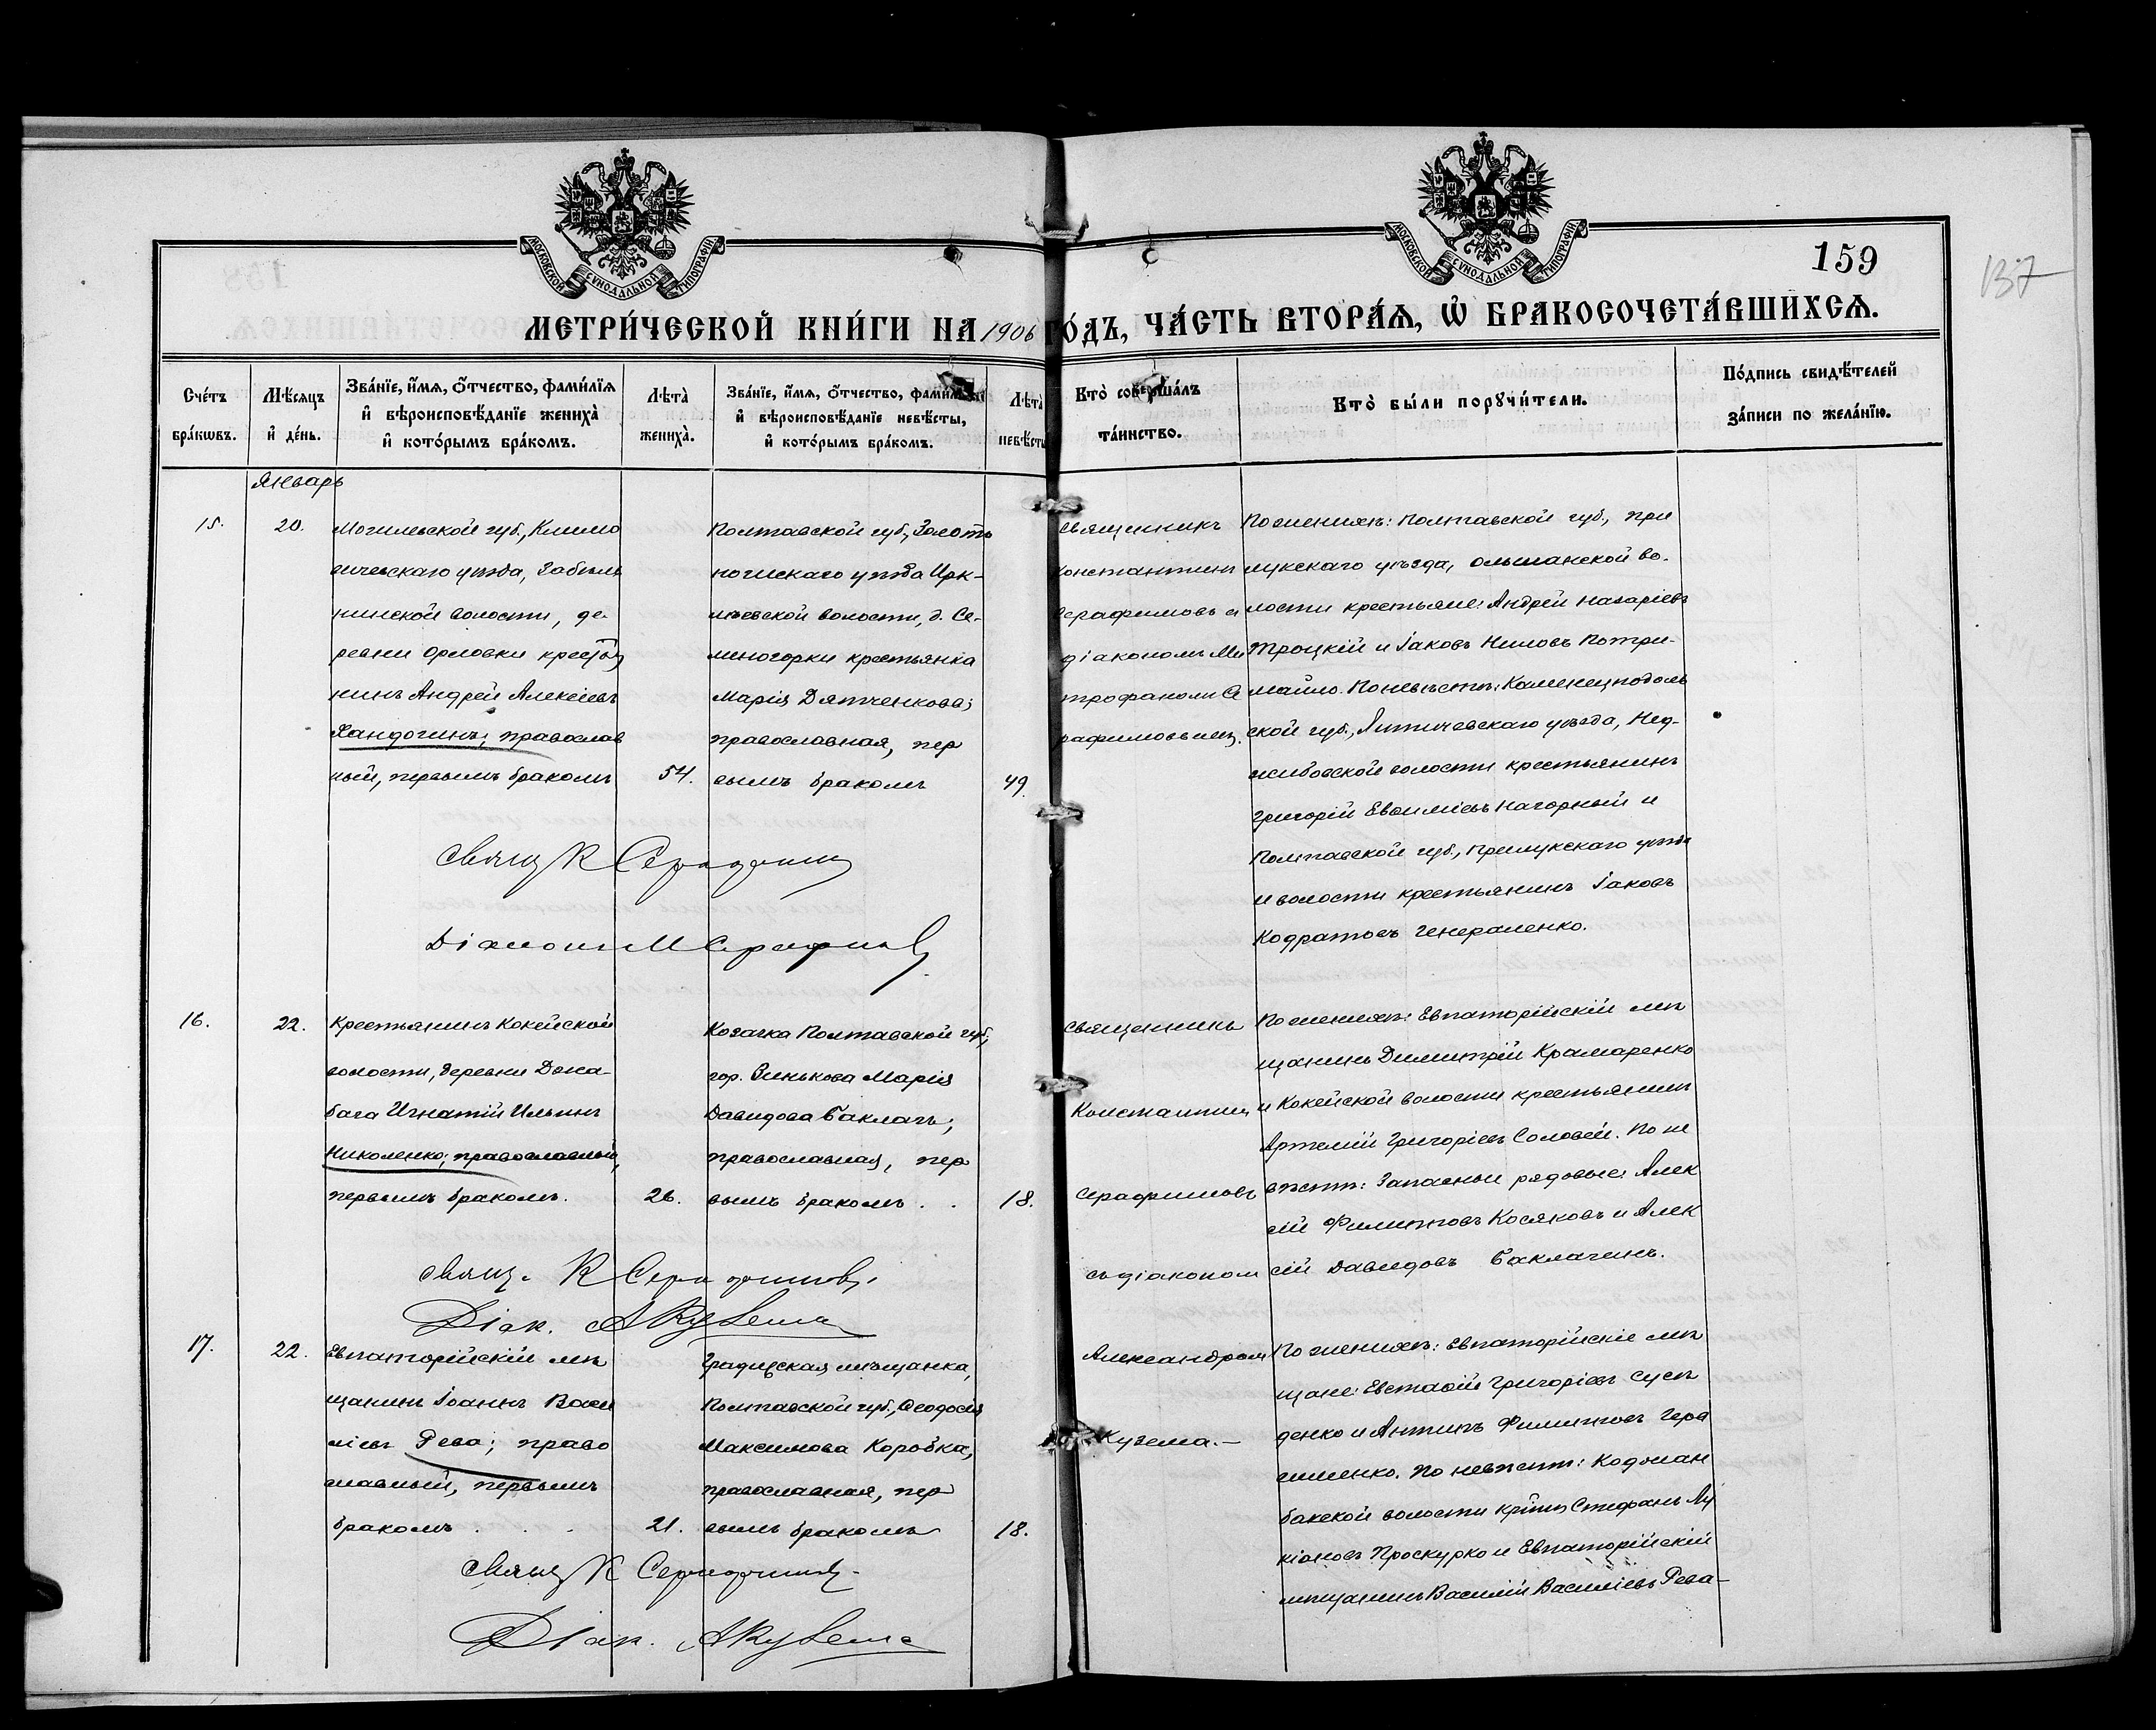 МОСКОВСКОЙ СѴНОДАЛЬНОЙ ТИПОГРАФІИ
МОСКОВСКОЙ СѴНОДАЛЬНОЙ ТИПОГРАФІИ
159
137
МЕТРИ́ЧЕСКОЙ КНИ́ГИ НА 1906 ГО́ДЪ, ЧА́СТЬ ВТОРА́Ѧ, Ѡ҆ БРАКОСОЧЕТА́ВШИХСѦ.
Сче́тъ бра́кѡвъ.
Мѣ́сѧцъ и҆ де́нь.
Зва́нїе, и҆́мѧ, ѻ҆́тчество, фами́лїѧ
и҆ вѣроисповѣ́данїе жениха̀
и҆ кото́рымъ бра́комъ.
Лѣта̀ жениха̀.
Зва́нїе, и҆́мѧ, ѻ҆́тчество, фами́лїѧ
и҆ вѣроисповѣ́данїе невѣ́сты,
и҆ кото́рымъ бра́комъ.
Лѣта̀ невѣ́сты
Кто̀ соверша́лъ та́инство.
Кто̀ бы́ли порꙋчи́тели.
По́дпись свидѣ́телей
за́писи по жела́нїю.
Январь
15.
20.
Могилевской губ., Климо
вичевскаго уѣзда, Забѣлы
нинской волости, де-
ревни Орловки крестья
нинъ Андрей Алексіевъ
Хандогинъ; православ
ный, первымъ бракомъ
54.
Полтавской губ., Золото
ношскаго уѣзда Ирк-
лѣевской волости, д. Се-
меногорки крестьянка
Марія Дятченкова;
православная, пер
вымъ бракомъ
49.
Священникъ
Константинъ
Серафимовъ съ
діакономъ Ми
трофаномъ Се
рафимовымъ.
По женихѣ: Полтавской губ., При
лукскаго уѣзда, Ольшанской во-
лости крестьяне: Андрей Назаріевъ
Троцкій и Іаковъ Ниловъ Потри-
майло. По невѣстѣ: Каменецподоль
ской губ., Литичевскаго уѣзда, Мед-
жибовской волости крестьянинъ
Григорій Евѳиміевъ Нагорный и
Полтавской губ., Прилукскаго уѣзда
и волости крестьянинъ Іаковъ
Кодратовъ Генераленко.
Свящ К Серафимов
Діаконъ М Серафимов
16.
22.
Крестьянинъ Кокейской
волости, деревни Джа-
бага Игнатій Ильинъ
Николенко; православный,
первымъ бракомъ.
26.
Козачка Полтавской губ.,
гор. Зинькова Марія
Давидова Баклагъ;
православная, пер
вымъ бракомъ . .
18.
Священникъ
Константинъ
Серафимовъ
съ діаконом
По женихѣ: Евпаторійскій мѣ
щанинъ Димитрій Крамаренко
и Кокейской волости крестьянинъ
Артемій Григоріевъ Соловей. По не
вѣстѣ: Запасные рядовые: Алек
сій Филипповъ Косяковъ и Алек
сій Давидовъ Баклагинъ.
Свящ. К Серафимовъ
Діак. А Кузема
17.
22.
Евпаторійскій мѣ
щанинъ Іоаннъ Васи
ліевъ Рева; право
славный, первымъ
бракомъ . . .
21.
Градижская мѣщанка,
Полтавской губ., Ѳеодосія
Максимова Коробка,
православная, пер
вымъ бракомъ
18.
Александром
Кузема.—
По женихѣ: Евпаторійскіе мѣ
щане: Евстаѳій Григоріевъ Сусѣ
денко и Антипъ Филипповъ Гера
сименко. По невѣстѣ: Кодоман
бакской волости крѣпн Стефанъ Лу
кіановъ Проскурко и Евпаторійскій
мѣщанинъ Василій Василіевъ Рева—
Свящ К Серафимовъ
Діак. А Кузема